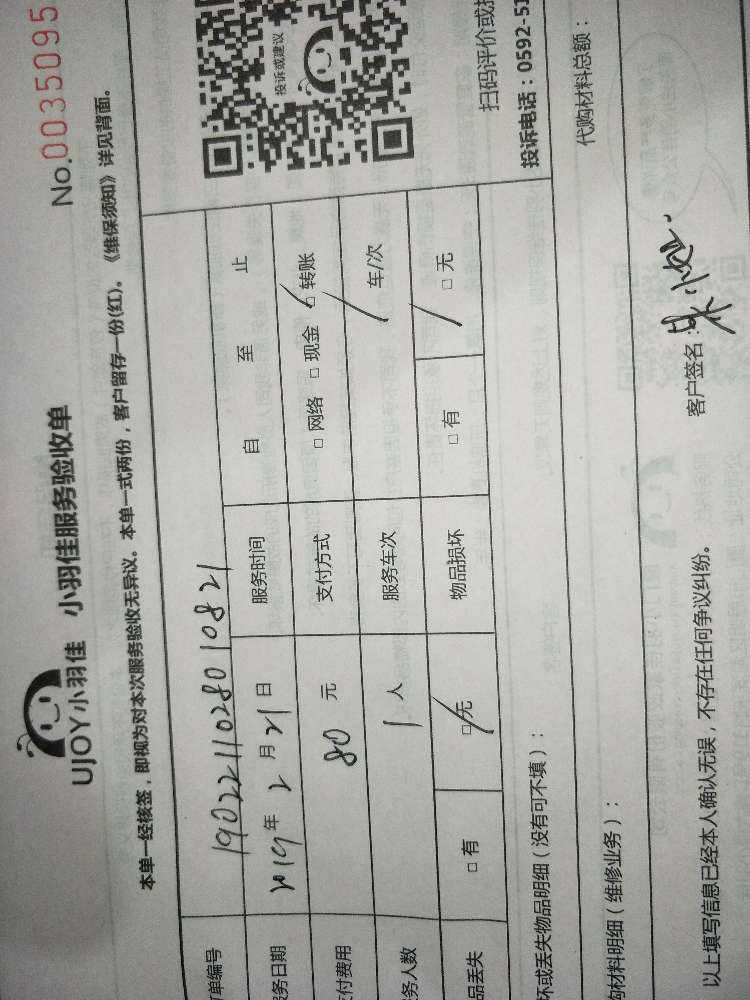 UJOY小羽佳 小羽佳服务验收单
No.0035095
本单一经核签，即视为对本次服务验收无异议。本单一式两份，客户留存一份(红)。《维保须知》详见背面。
单编号 1902211028010821
务日期 2019年2月21日 服务时间 自 至 止
付费用 80元 支付方式 □网络 □现金 □转账
务人数 1人 服务车次 / 车/次
品丢失 □有 □无 物品损坏 □有 □无
投诉或建议
扫码评价或
投诉电话：0592-51
坏或丢失物品明细（没有可不填）：
购材料明细（维修业务）：
代购材料总额：
以上填写信息已经本人确认无误，不存在任何争议纠纷。
客户签名：